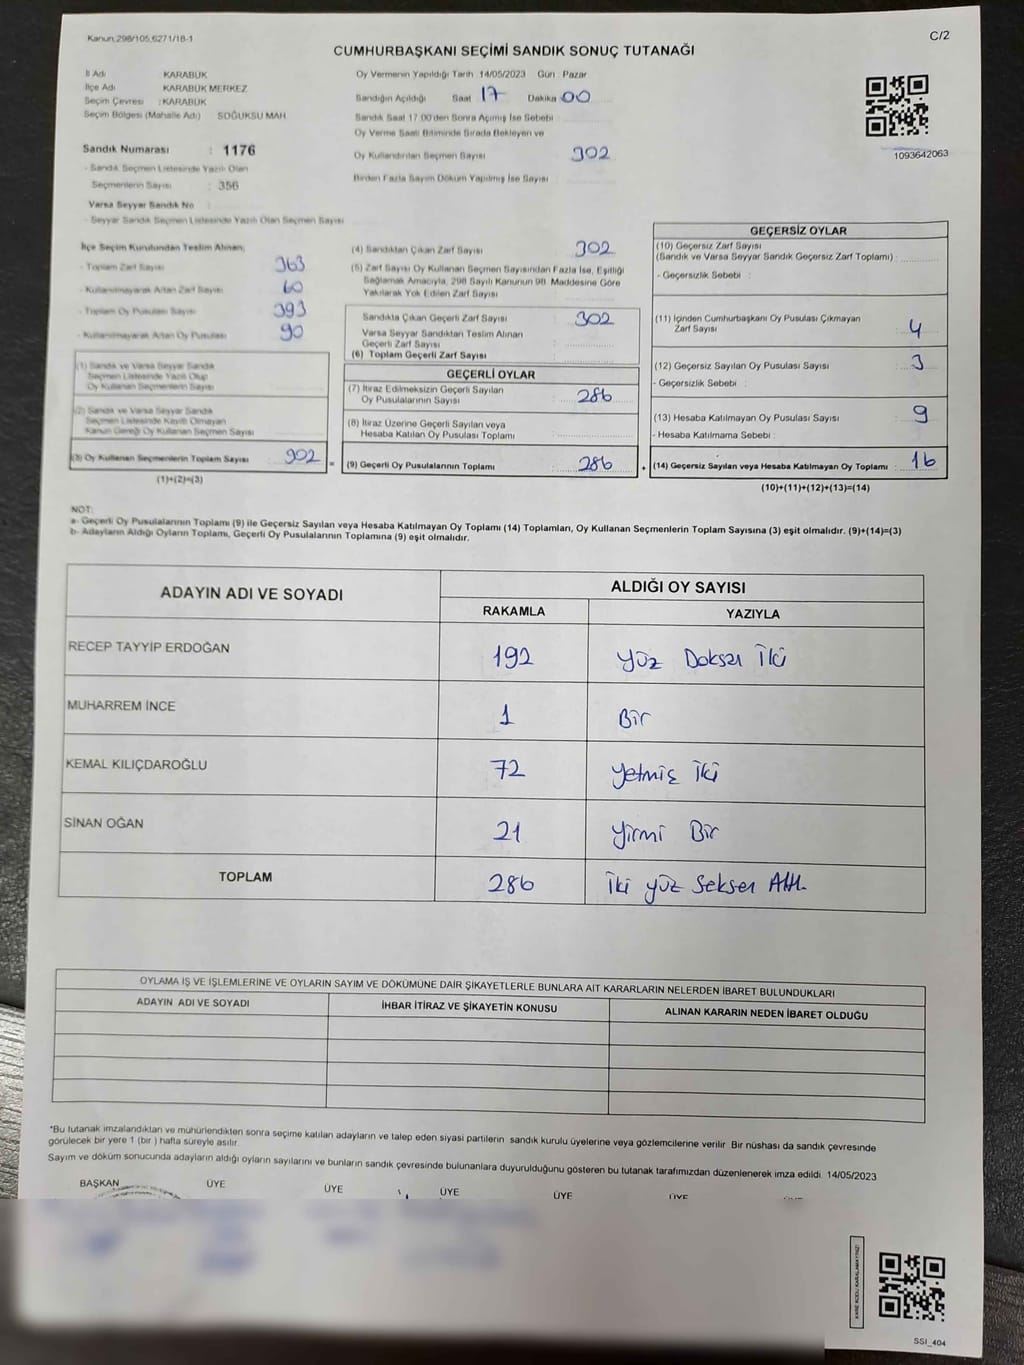 Kanun 298/105,6271/18-1
C/2
CUMHURBAŞKANI SEÇİMİ SANDIK SONUÇ TUTANAĞI
İl Adı KARABÜK
İlçe Adı KARABÜK MERKEZ
Seçim Çevresi : KARABÜK
Seçim Bölgesi (Mahalle Adı) SOĞUKSU MAH.
Sandık Numarası : 1176
- Sandık Seçmen Listesinde Yazılı Olan
Seçmenlerin Sayısı : 356
Varsa Seyyar Sandık No
- Seyyar Sandık Seçmen Listesinde Yazılı Olan Seçmen Sayısı
Oy Vermenin Yapıldığı Tarih 14/05/2023 Gün Pazar
Sandığın Açıldığı Saat 17 Dakika 00
Sandık Saat 17.00'den Sonra Açılmış İse Sebebi
Oy Verme Saati Bitiminde Sırada Bekleyen ve
Oy Kullandırılan Seçmen Sayısı 302
Birden Fazla Sayım Döküm Yapılmış İse Sayısı
1093642063
İlçe Seçim Kurulundan Teslim Alınan;
- Toplam Zarf Sayısı 363
- Kullanılmayarak Artan Zarf Sayısı 60
- Toplam Oy Pusulası Sayısı 393
- Kullanılmayarak Artan Oy Pusulası 90
(1) Sandık ve Varsa Seyyar Sandık
Seçmen Listesinde Yazılı Olup
Oy Kullanan Seçmenlerin Sayısı
(2) Sandık ve Varsa Seyyar Sandık
Seçmen Listesinde Kayıtlı Olmayan
Kanun Gereği Oy Kullanan Seçmen Sayısı
(3) Oy Kullanan Seçmenlerin Toplam Sayısı 902
(1)+(2)=(3)
(4) Sandıktan Çıkan Zarf Sayısı 302
(5) Zarf Sayısı Oy Kullanan Seçmen Sayısından Fazla İse, Eşitliği
Sağlamak Amacıyla, 298 Sayılı Kanunun 98. Maddesine Göre
Yakılarak Yok Edilen Zarf Sayısı
Sandıkta Çıkan Geçerli Zarf Sayısı 302
Varsa Seyyar Sandıktan Teslim Alınan
Geçerli Zarf Sayısı
(6) Toplam Geçerli Zarf Sayısı
GEÇERLİ OYLAR
(7) İtiraz Edilmeksizin Geçerli Sayılan
Oy Pusulalarının Sayısı 286
(8) İtiraz Üzerine Geçerli Sayılan veya
Hesaba Katılan Oy Pusulası Toplamı
= (9) Geçerli Oy Pusulalarının Toplamı 286
GEÇERSİZ OYLAR
(10) Geçersiz Zarf Sayısı
(Sandık ve Varsa Seyyar Sandık Geçersiz Zarf Toplamı) :
- Geçersizlik Sebebi :
(11) İçinden Cumhurbaşkanı Oy Pusulası Çıkmayan
Zarf Sayısı 4
(12) Geçersiz Sayılan Oy Pusulası Sayısı 3
- Geçersizlik Sebebi :
(13) Hesaba Katılmayan Oy Pusulası Sayısı 9
- Hesaba Katılmama Sebebi :
+ (14) Geçersiz Sayılan veya Hesaba Katılmayan Oy Toplamı : 16
(10)+(11)+(12)+(13)=(14)
NOT:
a- Geçerli Oy Pusulalarının Toplamı (9) ile Geçersiz Sayılan veya Hesaba Katılmayan Oy Toplamı (14) Toplamları, Oy Kullanan Seçmenlerin Toplam Sayısına (3) eşit olmalıdır. (9)+(14)=(3)
b- Adayların Aldığı Oyların Toplamı, Geçerli Oy Pusulalarının Toplamına (9) eşit olmalıdır.
ADAYIN ADI VE SOYADI ALDIĞI OY SAYISI
RAKAMLA YAZIYLA
RECEP TAYYİP ERDOĞAN 192 Yüz Doksan İki
MUHARREM İNCE 1 Bir
KEMAL KILIÇDAROĞLU 72 Yetmiş İki
SİNAN OĞAN 21 Yirmi Bir
TOPLAM 286 İki Yüz Seksen Altı
OYLAMA İŞ VE İŞLEMLERİNE VE OYLARIN SAYIM VE DÖKÜMÜNE DAİR ŞİKAYETLERLE BUNLARA AİT KARARLARIN NELERDEN İBARET BULUNDUKLARI
ADAYIN ADI VE SOYADI İHBAR İTİRAZ VE ŞİKAYETİN KONUSU ALINAN KARARIN NEDEN İBARET OLDUĞU
*Bu tutanak imzalandıktan ve mühürlendikten sonra seçime katılan adayların ve talep eden siyasi partilerin sandık kurulu üyelerine veya gözlemcilerine verilir. Bir nüshası da sandık çevresinde
görülecek bir yere 1 (bir) hafta süreyle asılır.
Sayım ve döküm sonucunda adayların aldığı oyların sayılarını ve bunların sandık çevresinde bulunanlara duyurulduğunu gösteren bu tutanak tarafımızdan düzenlenerek imza edildi. 14/05/2023
BAŞKAN ÜYE ÜYE ÜYE ÜYE ÜYE
KARE KODU KARALAMAYINIZ!
SSI_404